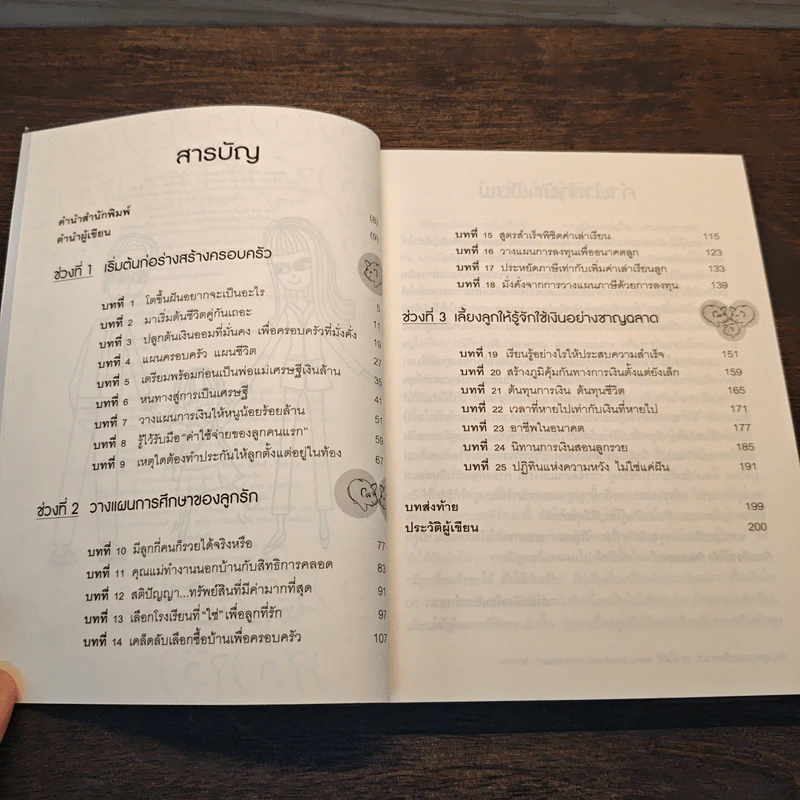 สารบัญ
คำนำสำนักพิมพ์ (8)
คำนำผู้เขียน (9)
ช่วงที่ 1 เริ่มต้นก่อร่างสร้างครอบครัว
บทที่ 1 โตขึ้นฝันอยากจะเป็นอะไร 5
บทที่ 2 มาเริ่มต้นชีวิตคู่กันเถอะ 11
บทที่ 3 ปลูกต้นเงินออมที่มั่นคง เพื่อครอบครัวที่มั่งคั่ง 19
บทที่ 4 แผนครอบครัว แผนชีวิต 27
บทที่ 5 เตรียมพร้อมก่อนเป็นพ่อแม่เศรษฐีเงินล้าน 35
บทที่ 6 หนทางสู่การเป็นเศรษฐี 41
บทที่ 7 วางแผนการเงินให้หนูน้อยร้อยล้าน 51
บทที่ 8 รู้ไว้รับมือ "ค่าใช้จ่ายของลูกคนแรก" 59
บทที่ 9 เหตุใดต้องทำประกันให้ลูกตั้งแต่อยู่ในท้อง 67
ช่วงที่ 2 วางแผนการศึกษาของลูกรัก
บทที่ 10 มีลูกกี่คนก็รวยได้จริงหรือ 77
บทที่ 11 คุณแม่ทำงานนอกบ้านกับสิทธิการคลอด 83
บทที่ 12 สติปัญญา...ทรัพย์สินที่มีค่ามากที่สุด 91
บทที่ 13 เลือกโรงเรียนที่ "ใช่" เพื่อลูกที่รัก 97
บทที่ 14 เคล็ดลับเลือกซื้อบ้านเพื่อครอบครัว 107
บทที่ 15 สูตรสำเร็จพิชิตค่าเล่าเรียน 115
บทที่ 16 วางแผนการลงทุนเพื่ออนาคตลูก 123
บทที่ 17 ประหยัดภาษีเท่ากับเพิ่มค่าเรียนลูก 133
บทที่ 18 มั่งคั่งจากการวางแผนภาษีด้วยการลงทุน 139
ช่วงที่ 3 เลี้ยงลูกให้รู้จักใช้เงินอย่างชาญฉลาด
บทที่ 19 เรียนรู้อย่างไรให้ประสบความสำเร็จ 151
บทที่ 20 สร้างภูมิคุ้มกันทางการเงินตั้งแต่ยังเล็ก 159
บทที่ 21 ต้นทุนการเงิน ต้นทุนชีวิต 165
บทที่ 22 เวลาที่หายไปเท่ากับเงินที่หายไป 171
บทที่ 23 อาชีพในอนาคต 177
บทที่ 24 นิทานการเงินสอนลูกรวย 185
บทที่ 25 ปฏิทินแห่งความหวัง ไม่ใช่แค่ฝัน 191
บทส่งท้าย 199
ประวัติผู้เขียน 200